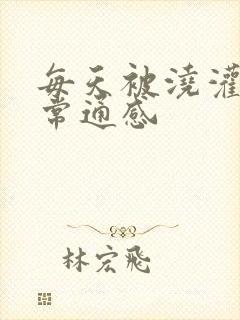 每天被浇灌
常通感
林宏飛